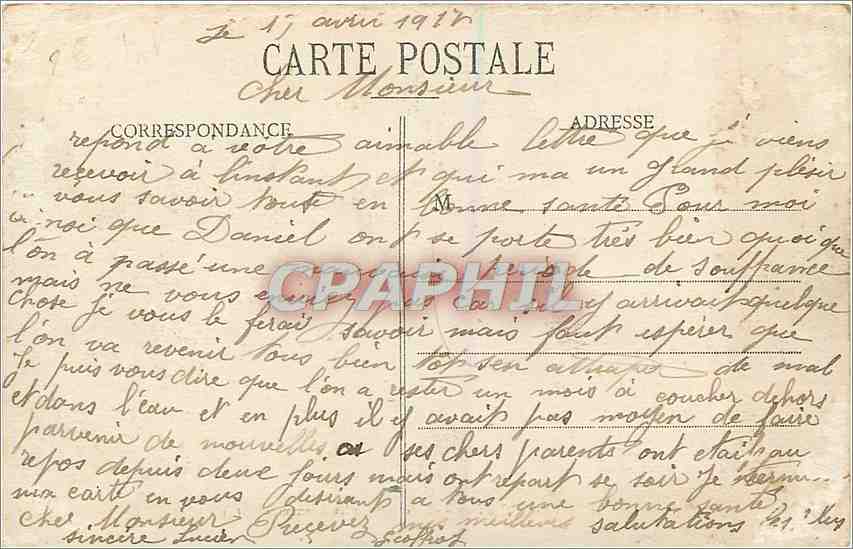 Le 15 avril 1917
CARTE POSTALE
Cher Monsieur
CORRESPONDANCE
ADRESSE
repond a votre aimable lettre que j'viens
recevoir à l'instant et qui ma un grand plésir
vous savoir tous en bonne santé Pour moi
M
moi que Daniel ont se porte très bien quoi que
l'on à passé une mauvais période de souffrance
CPAPHIL
mais ne vous ennuyez pas car il y arrivait quelque
chose je vous le ferai savoir mais faut espérer que
l'on va revenir tous bien de mal
Je puis vous dire que l'on a rester un mois à coucher dehors
et dans l'eau et en plus il y avait pas moyen de faire
parvenir de nouvelles a ses chers parents ont etait au
repos depuis deux jours mais ont repart se soir Je
ma carte en vous desirant a tous une bonne santé
Cher Monsieur Recevez mes meilleurs salutations
sincère Lucien